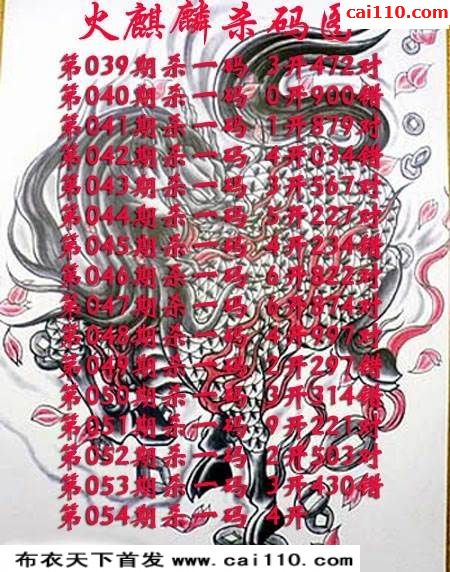 cai110.com
火麒麟杀码
第039期杀一码 3开472对
第040期杀一码 0开900错
第041期杀一码 1开879对
第042期杀一码 4开034错
第043期杀一码 3开567对
第044期杀一码 5开227对
第045期杀一码 4开234错
第046期杀一码 6开822对
第047期杀一码 6开874对
第048期杀一码 4开997对
第049期杀一码 2开297错
第050期杀一码 3开314错
第051期杀一码 9开221对
第052期杀一码 2开503对
第053期杀一码 3开430错
第054期杀一码 4开
布衣天下首发 www.cai110.com